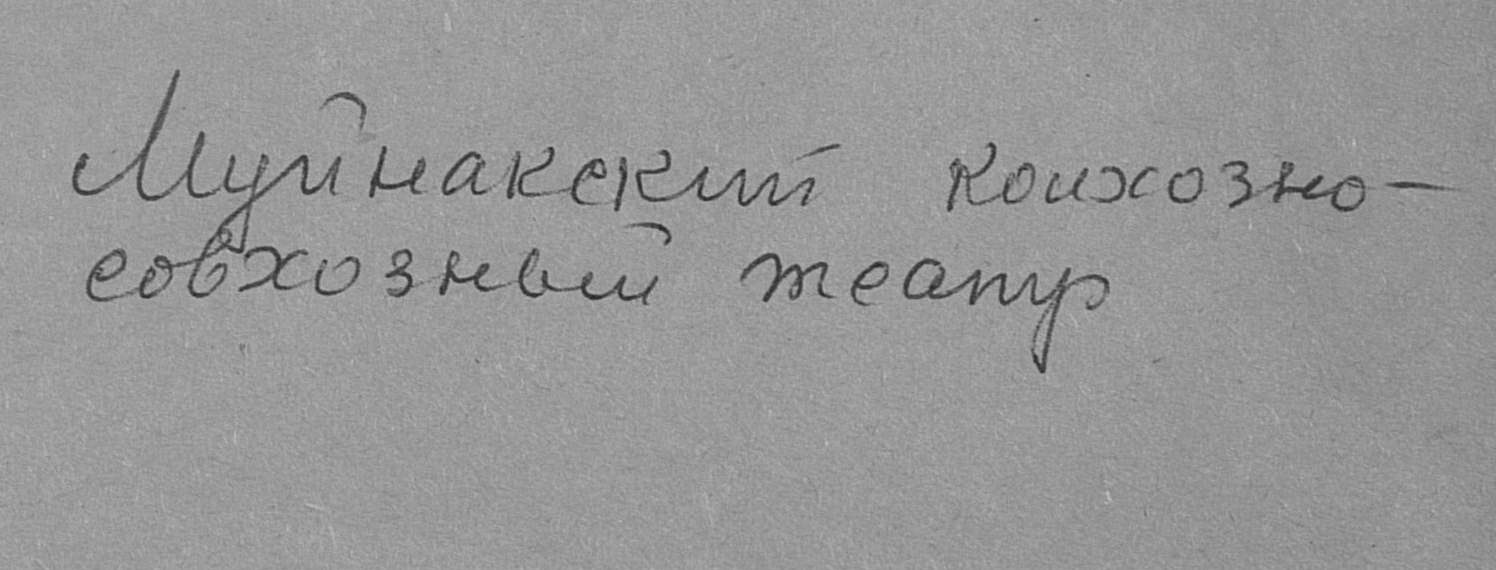 Муйнакский колхозно-
совхозный театр